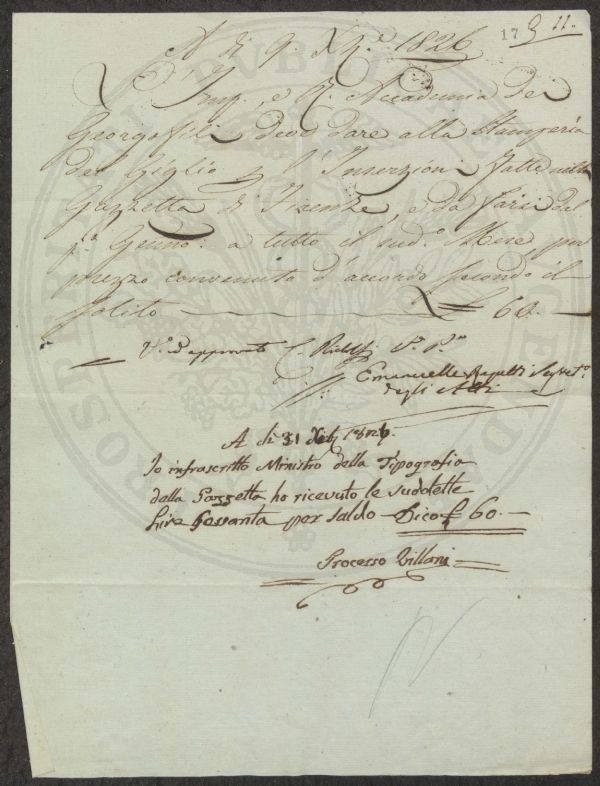 17 9 11.
A di 9 Xbre 1826
L'Imp. e R. Accademia dei
Georgofili deve dare alla Stamperia
del Giglio p l'Inserzioni fatte nella
Gazzetta di Firenze, e da farsi dal
p.º Genno: a tutto il sud.º Mese, per
prezzo convenuto d'accordo secondo il
solito £ 60.
V.º ed approvato C. Ridolfi P. P.
Emanuelle Repetti Segret.º
degli Atti
A di 31 Xbre 1826.
Io infrascritto Ministro della Tipografia
della Gazzetta ho ricevuto le suddette
Lire Sessanta per saldo Dico £ 60.
Processo Villani